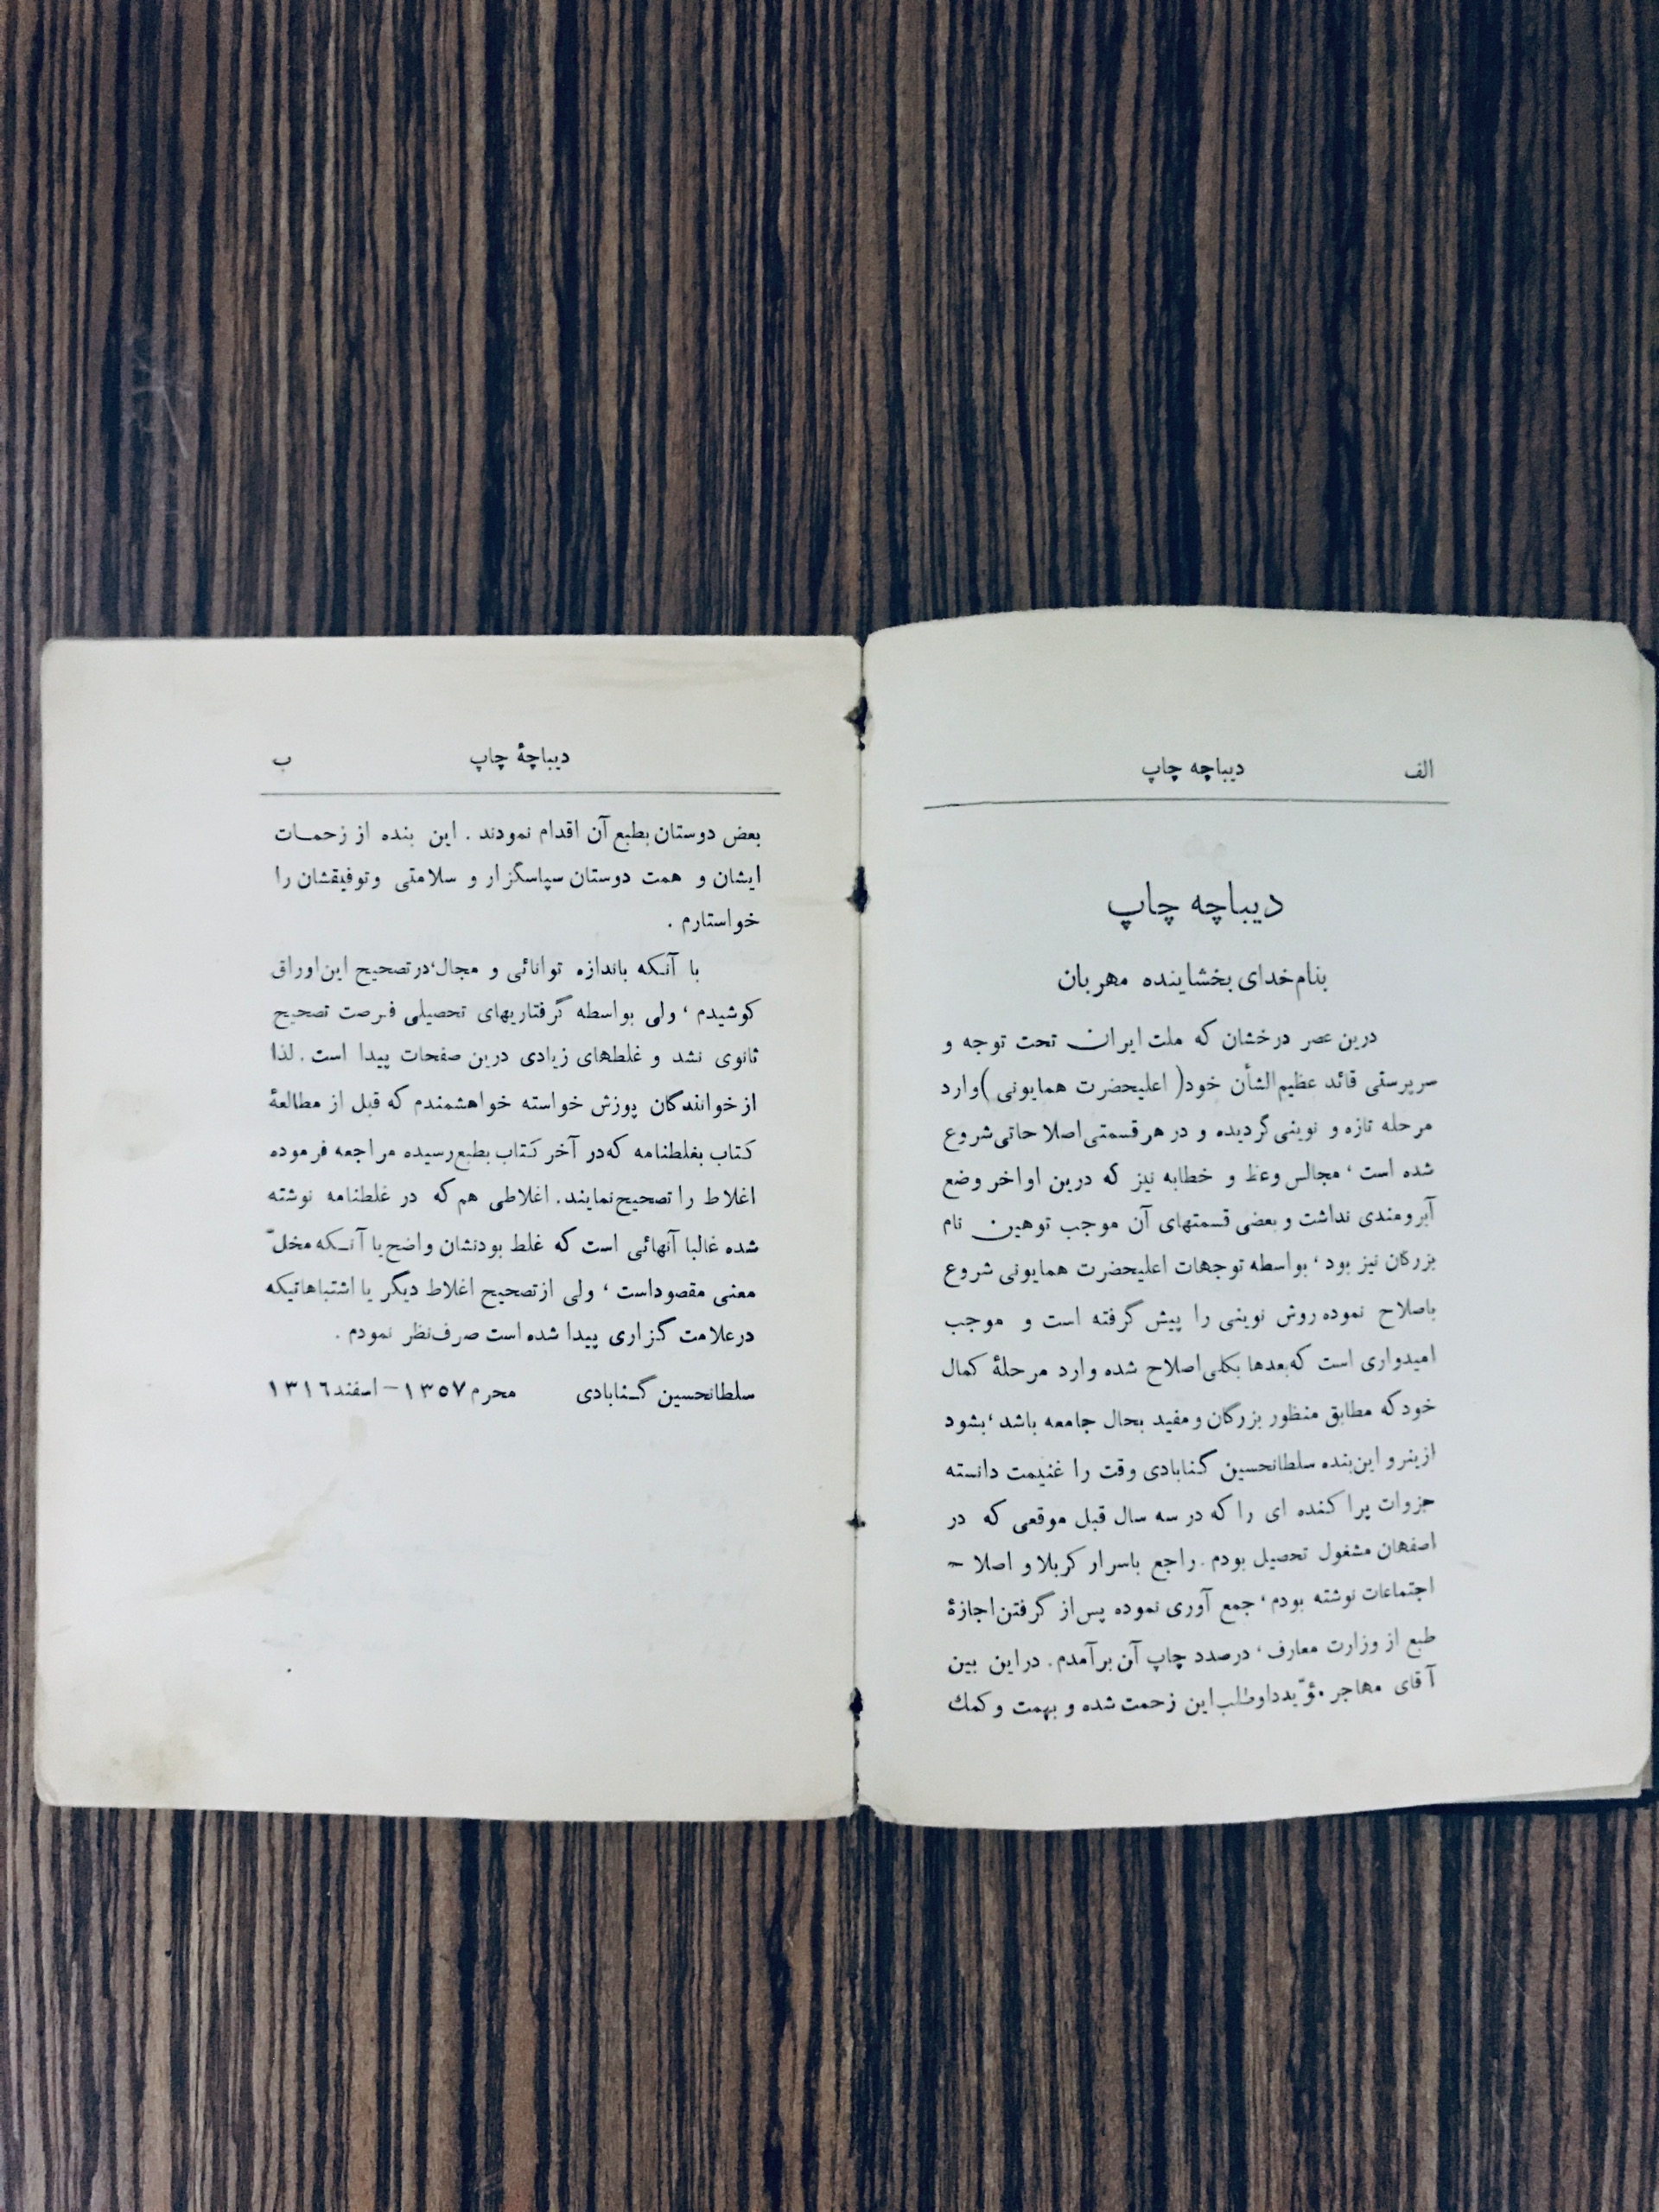 الف
دیباچه چاپ
دیباچه چاپ
بنام خدای بخشاینده مهربان
درین عصر درخشان که ملت ایران تحت توجه و
سرپرستی قائد عظیم‌الشأن خود( اعلیحضرت همایونی )وارد
مرحله تازه و نوینی گردیده و در هر قسمتی اصلاحاتی شروع
شده است ، مجالس وعظ و خطابه نیز که درین اواخر وضع
آبرومندی نداشت و بعضی قسمتهای آن موجب توهین نام
بزرگان نیز بود ، بواسطه توجهات اعلیحضرت همایونی شروع
باصلاح نموده روش نوینی را پیش گرفته است و موجب
امیدواری است که بعدها بکلی اصلاح شده وارد مرحلهٔ کمال
خود که مطابق منظور بزرگان و مفید بحال جامعه باشد ، بشود
ازینرو این بنده سلطانحسین گنابادی وقت را غنیمت دانسته
جزوات پراکنده ای را که در سه سال قبل موقعی که در
اصفهان مشغول تحصیل بودم . راجع باسرار کربلا و اصلاح
اجتماعات نوشته بودم ، جمع آوری نموده پس از گرفتن اجازهٔ
طبع از وزارت معارف ، درصدد چاپ آن برآمدم . در این بین
آقای مهاجر مؤیّد داوطلب این زحمت شده و بهمت و کمک
دیباچهٔ چاپ
ب
بعض دوستان بطبع آن اقدام نمودند . این بنده از زحمات
ایشان و همت دوستان سپاسگزار و سلامتی و توفیقشان را
خواستارم .
با آنکه باندازه توانائی و مجال ، در تصحیح این اوراق
کوشیدم ، ولی بواسطه گرفتاریهای تحصیلی فرصت تصحیح
ثانوی نشد و غلطهای زیادی درین صفحات پیدا است . لذا
از خوانندگان پوزش خواسته خواهشمندم که قبل از مطالعهٔ
کتاب بغلطنامه که در آخر کتاب بطبع رسیده مراجعه فرموده
اغلاط را تصحیح نمایند . اغلاطی هم که در غلطنامه نوشته
شده غالبا آنهائی است که غلط بودنشان واضح یا آنکه مخلّ
معنی مقصود است ، ولی از تصحیح اغلاط دیگر یا اشتباهاتیکه
در علامت گزاری پیدا شده است صرف‌نظر نمودم .
سلطانحسین گنابادی محرم ۱۳۵۷ – اسفند ۱۳۱۶